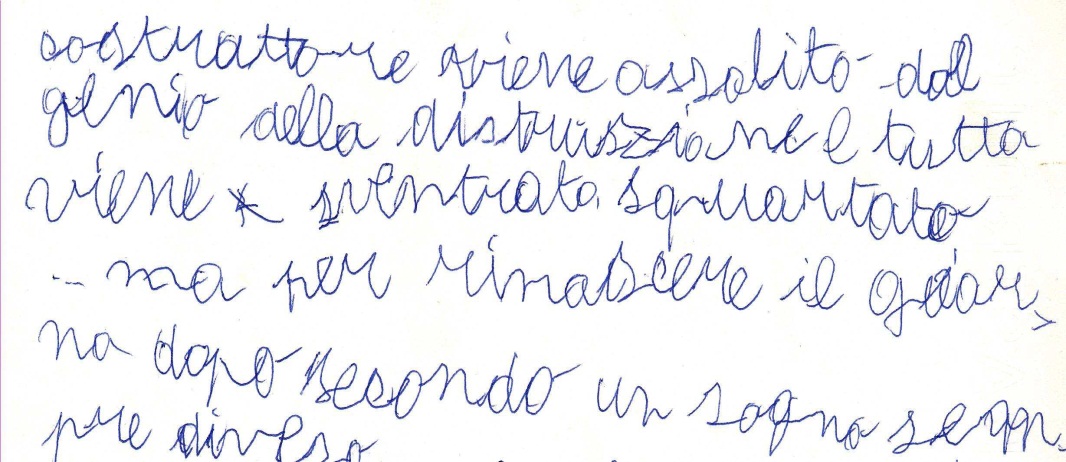 costruttore viene assalito dal
genio della distruzione e tutto
viene sventrato, squartato
... ma per rinascere il gior-
no dopo secondo un sogno sem-
pre diverso